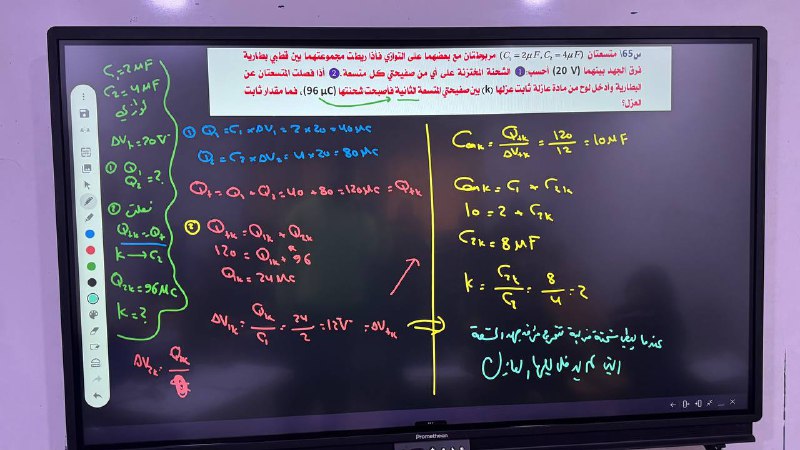 س65\ متسعتان (C₁=2μF, C₂=4μF) مربوطتان مع بعضهما على التوازي فاذا ربطت مجموعتهما بين قطبي بطارية
فرق الجهد بينهما (20 V) أحسب: 1 الشحنة المختزنة على أي من صفيحتي كل متسعة. 2 أذا فصلت المتسعتان عن
البطارية وأدخل لوح من مادة عازلة ثابت عزلها (k) بين صفيحتي المتسعة الثانية فأصبحت شحنتها (96 μC)، فما مقدار ثابت
العزل؟
C₁=2μF
C₂=4μF
توازي
ΔV_t=20V
① Q₁
Q₂=?
② فصلت
Q_tk=Q_t
k→C₂
Q₂k=96μC
k=?
① Q₁=C₁×ΔV₁=2×20=40μC
Q₂=C₂×ΔV₂=4×20=80μC
Q_t=Q₁+Q₂=40+80=120μC=Q_tk
② Q_tk=Q₁k+Q₂k
120=Q₁k+96
Q₁k=24μC
ΔV₁k=Q₁k/C₁=24/2=12V=ΔV_tk
ΔV₂k=Q₂k/
C_eqk=Q_tk/ΔV_tk=120/12=10μF
C_eqk=C₁+C₂k
10=2+C₂k
C₂k=8μF
k=C₂k/C₂=8/4=2
عندما يعطي شحنة
التي لم يدخل اليها العازل
Promethean